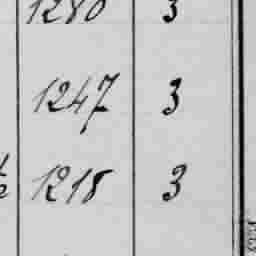 1280 3
1247 3
1218 3